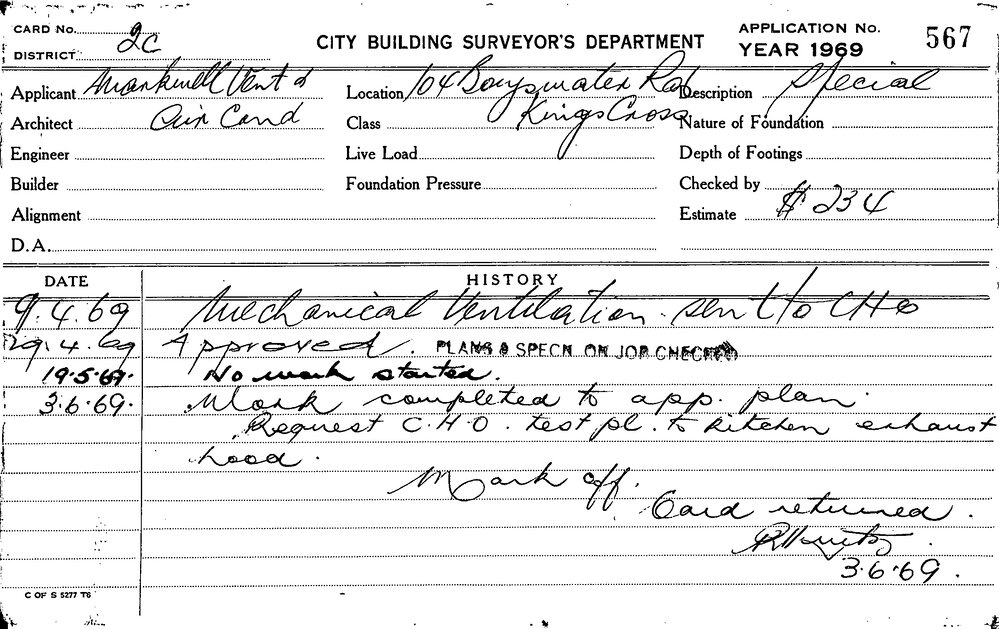 CARD No.
DISTRICT 2C
CITY BUILDING SURVEYOR'S DEPARTMENT
APPLICATION No. 567
YEAR 1969
Applicant Markwell Vent &
Location 104 Bayswater Rd
Description Special
Architect Air Cond
Class Kings Cross
Nature of Foundation
Engineer
Live Load
Depth of Footings
Builder
Foundation Pressure
Checked by
Alignment
Estimate $ 234
D.A.
DATE HISTORY
9.4.69 Mechanical Ventilation. sent to CHO
29.4.69 Approved. PLANS & SPECN ON JOB CHECKED
19.5.69. No work started.
3.6.69. Work completed to app. plan.
Request C.H.O. test pl. to kitchen exhaust
hood.
Mark off.
Card returned.
3.6.69.
C OF S 5277 T6